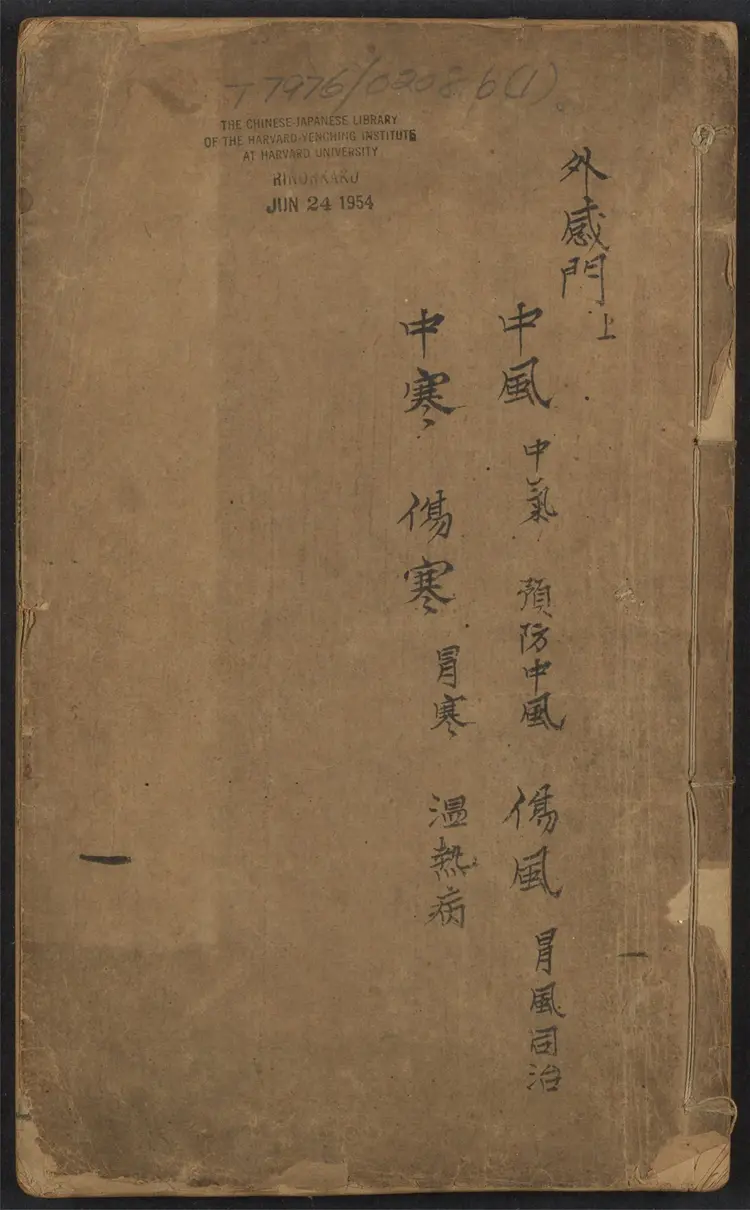 T 7976/0208.6(1)
THE CHINESE-JAPANESE LIBRARY
OF THE HARVARD-YENCHING INSTITUTE
AT HARVARD UNIVERSITY
JUN 24 1954
外感門上
中風 中氣 預防中風 傷風 冒風同治
中寒 傷寒 冒寒 温熱病
一
一